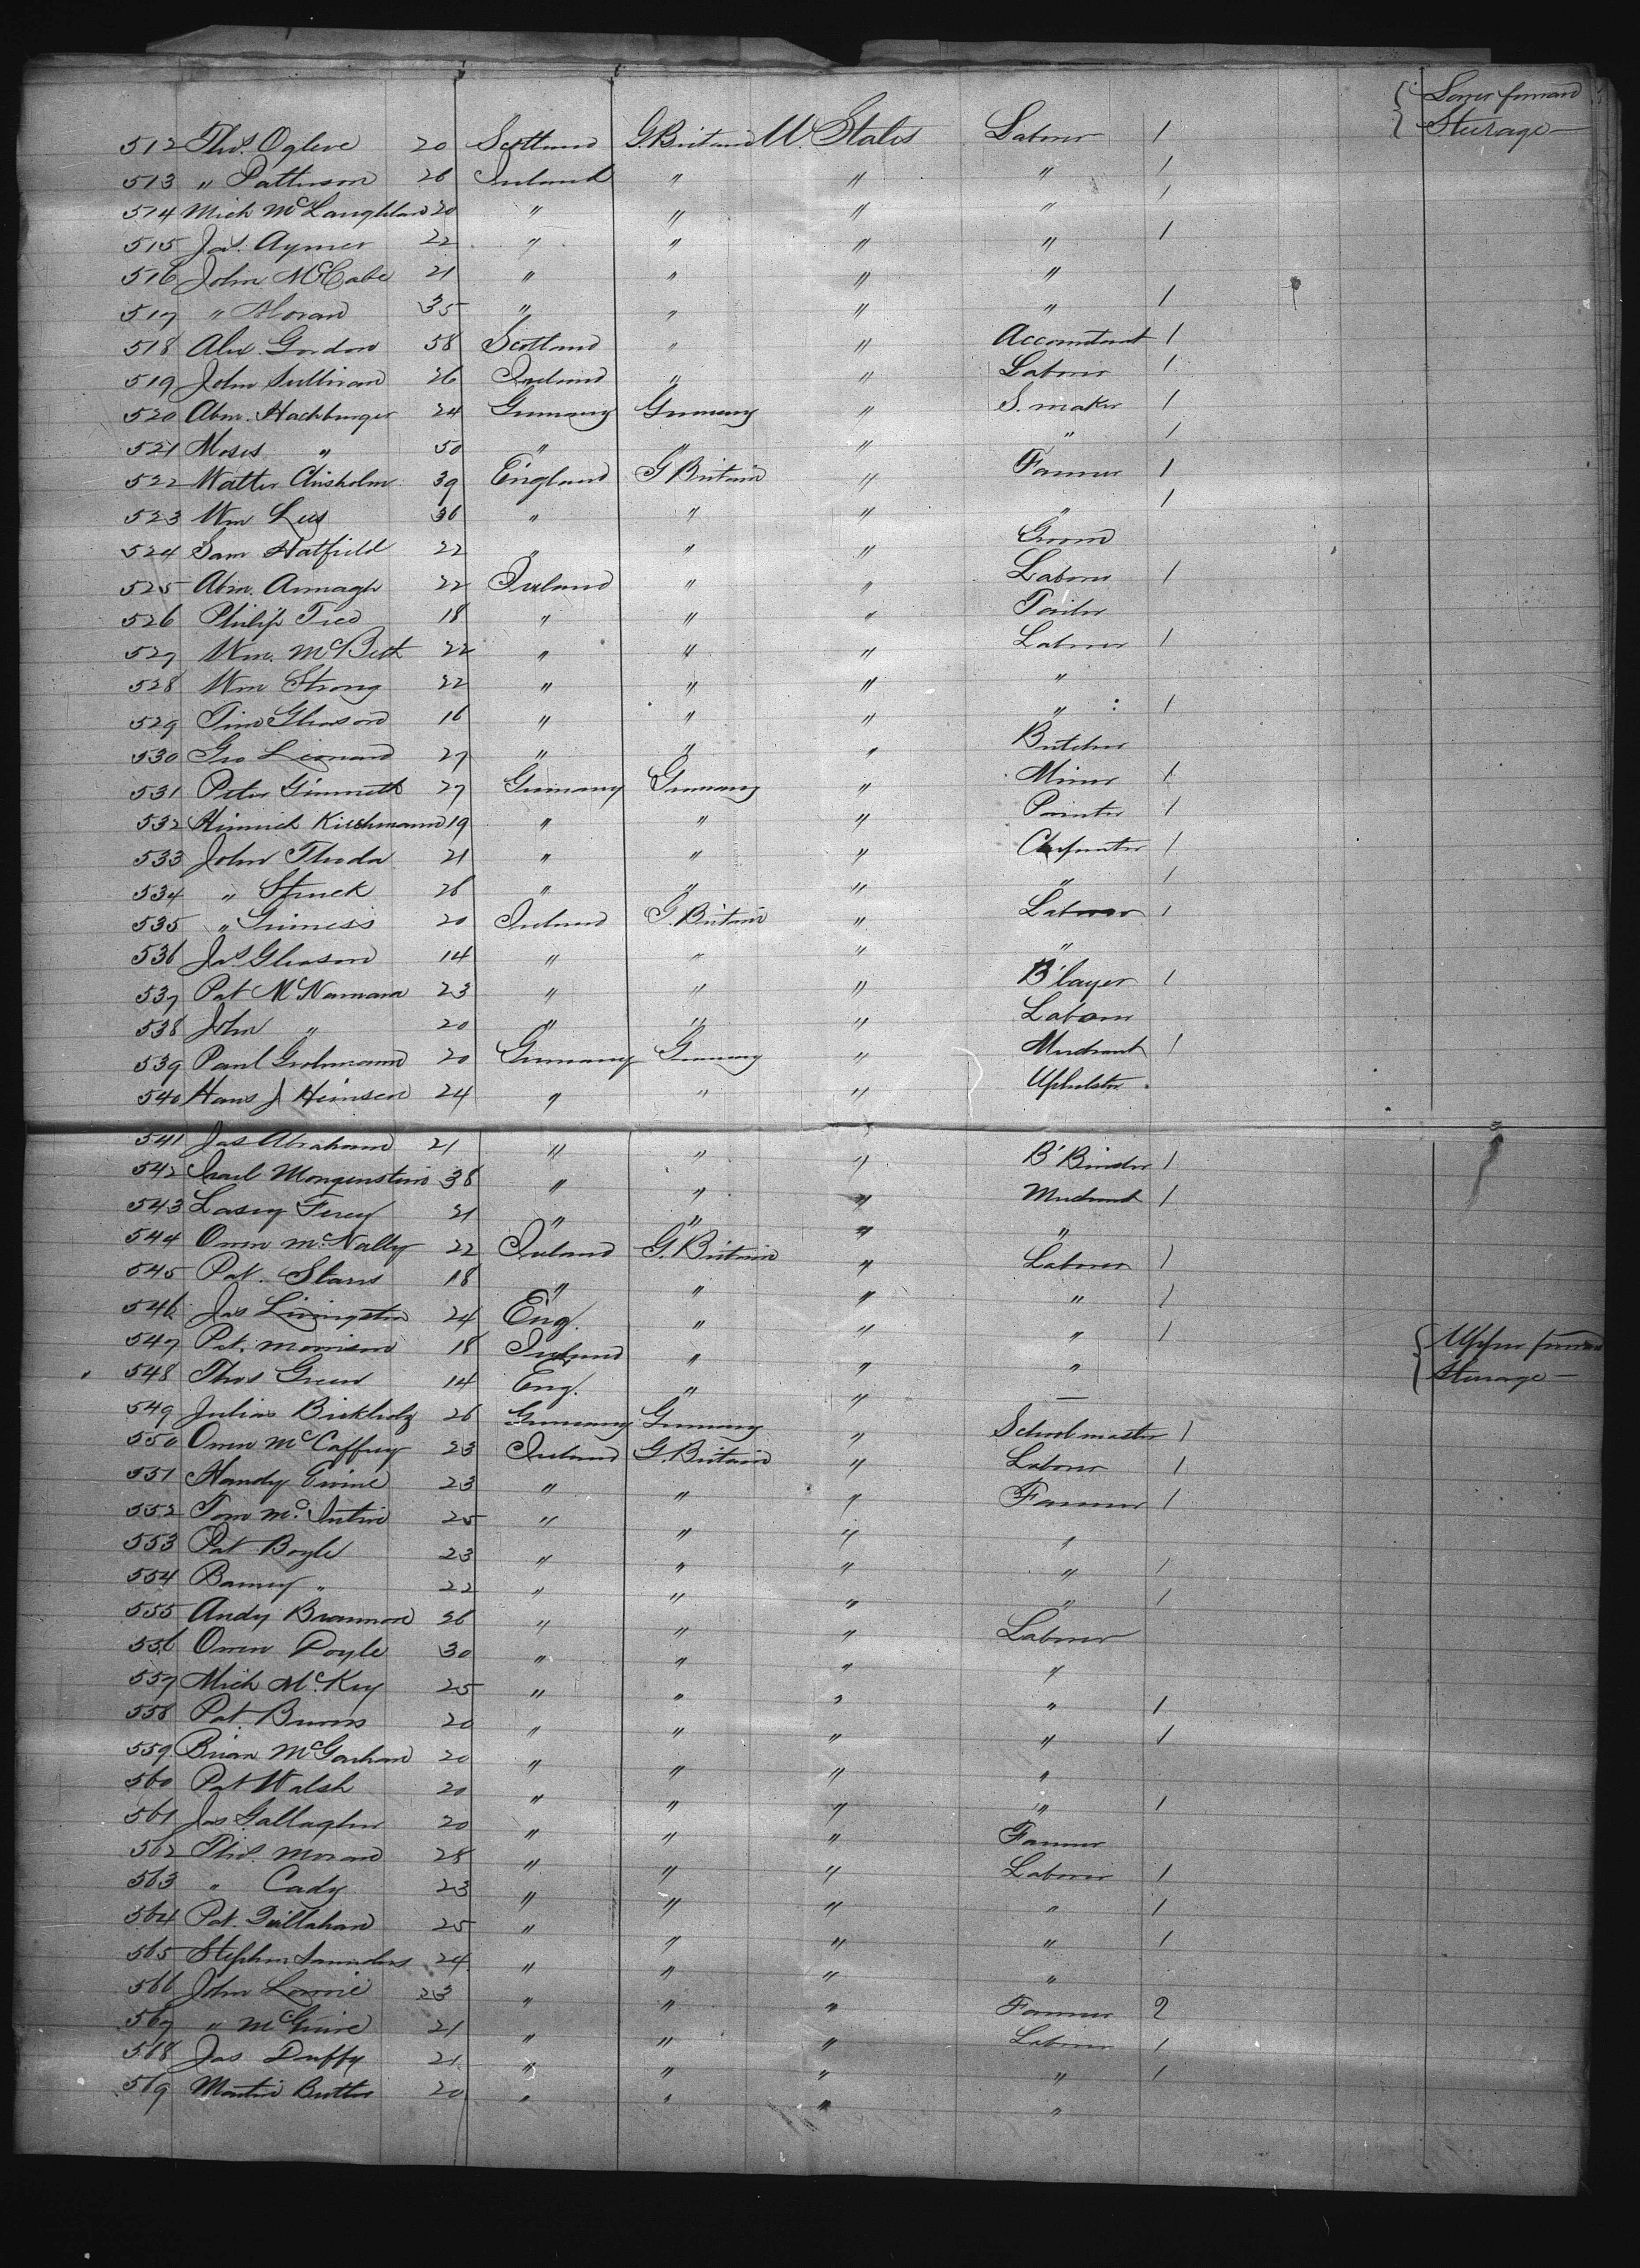 Lower forward
Steerage —
512 Thos. Ogleve 20 Scotland G. Britain U. States Laborer 1
513 " Patterson 26 Ireland " " " 1
514 Mich McLaughlan 20 " " " " 1
515 Jas. Aymer 22 " " " " 1
516 John McCabe 21 " " " "
517 " Moran 35 " " " " 1
518 Alex. Gordon 58 Scotland " " Accountant 1
519 John Sullivan 26 Ireland " " Laborer 1
520 Abm. Hachburger 24 Germany Germany " S. maker 1
521 Moses " 50 " " " " 1
522 Walter Chisholm 39 England G Britain " Farmer 1
523 Wm Lees 36 " " " " 1
524 Sam Hatfield 22 " " " Groom
525 Abm. Armagh 22 Ireland " " Laborer 1
526 Philip Tied 18 " " " Tailor
527 Wm. McBeth 22 " " " Laborer 1
528 Wm Strong 22 " " " "
529 Tim Gleason 16 " " " " 1
530 Geo Leonard 27 " " " Butcher
531 Peter 27 Germany Germany " Miner 1
532 Heinrich Kirchmann 19 " " " Painter 1
533 John Thoda 21 " " " Carpenter 1
534 " Struck 26 " " " " 1
535 " Guiness 20 Ireland G. Britain " Laborer 1
536 Jas. Gleason 14 " " " "
537 Pat McNamara 23 " " " B'layer 1
538 John " 20 " " " Laborer
539 Paul Grohmann 20 Germany Germany " Merchant 1
540 Hans J Heinsen 24 " " " Upholster
541 Jas Abraham 21 " " " B'Binder 1
542 Israel Morgenstein 38 " " " Merchant 1
543 21 " " " "
544 Owen McNally 22 Ireland G. Britain " Laborer 1
545 Pat. 18 " " " " 1
546 Jas Livingston 24 Eng. " " " 1
547 Pat. Morrison 18 Ireland " " "
Upper forward
Steerage —
548 Thos Green 14 Eng. " " —
549 Julius Birkholz 26 Germany Germany " Schoolmaster 1
550 Owen McCaffrey 23 Ireland G. Britain " Laborer 1
551 Handy Ervine 23 " " " Farmer 1
552 Tom McIntire 25 " " " "
553 Pat Boyle 23 " " " " 1
554 Barney " 22 " " " " 1
555 Andy Brannon 26 " " " Laborer
556 Owen Doyle 30 " " " "
557 Mich McKey 25 " " " " 1
558 Pat. Burns 20 " " " " 1
559 Brian McGarhan 20 " " " "
560 Pat Walsh 20 " " " " 1
561 Jas Gallagher 20 " " " Farmer
562 Phil. Moran 28 " " " Laborer 1
563 " Cady 23 " " " " 1
564 Pat. 25 " " " " 1
565 Stephen Saunders 24 " " " "
566 John Lowrie 23 " " " Farmer 2
567 " McGuire 21 " " " Laborer 1
568 Jas Duffy 21 " " " " 1
569 Martin Butter 20 " " " "